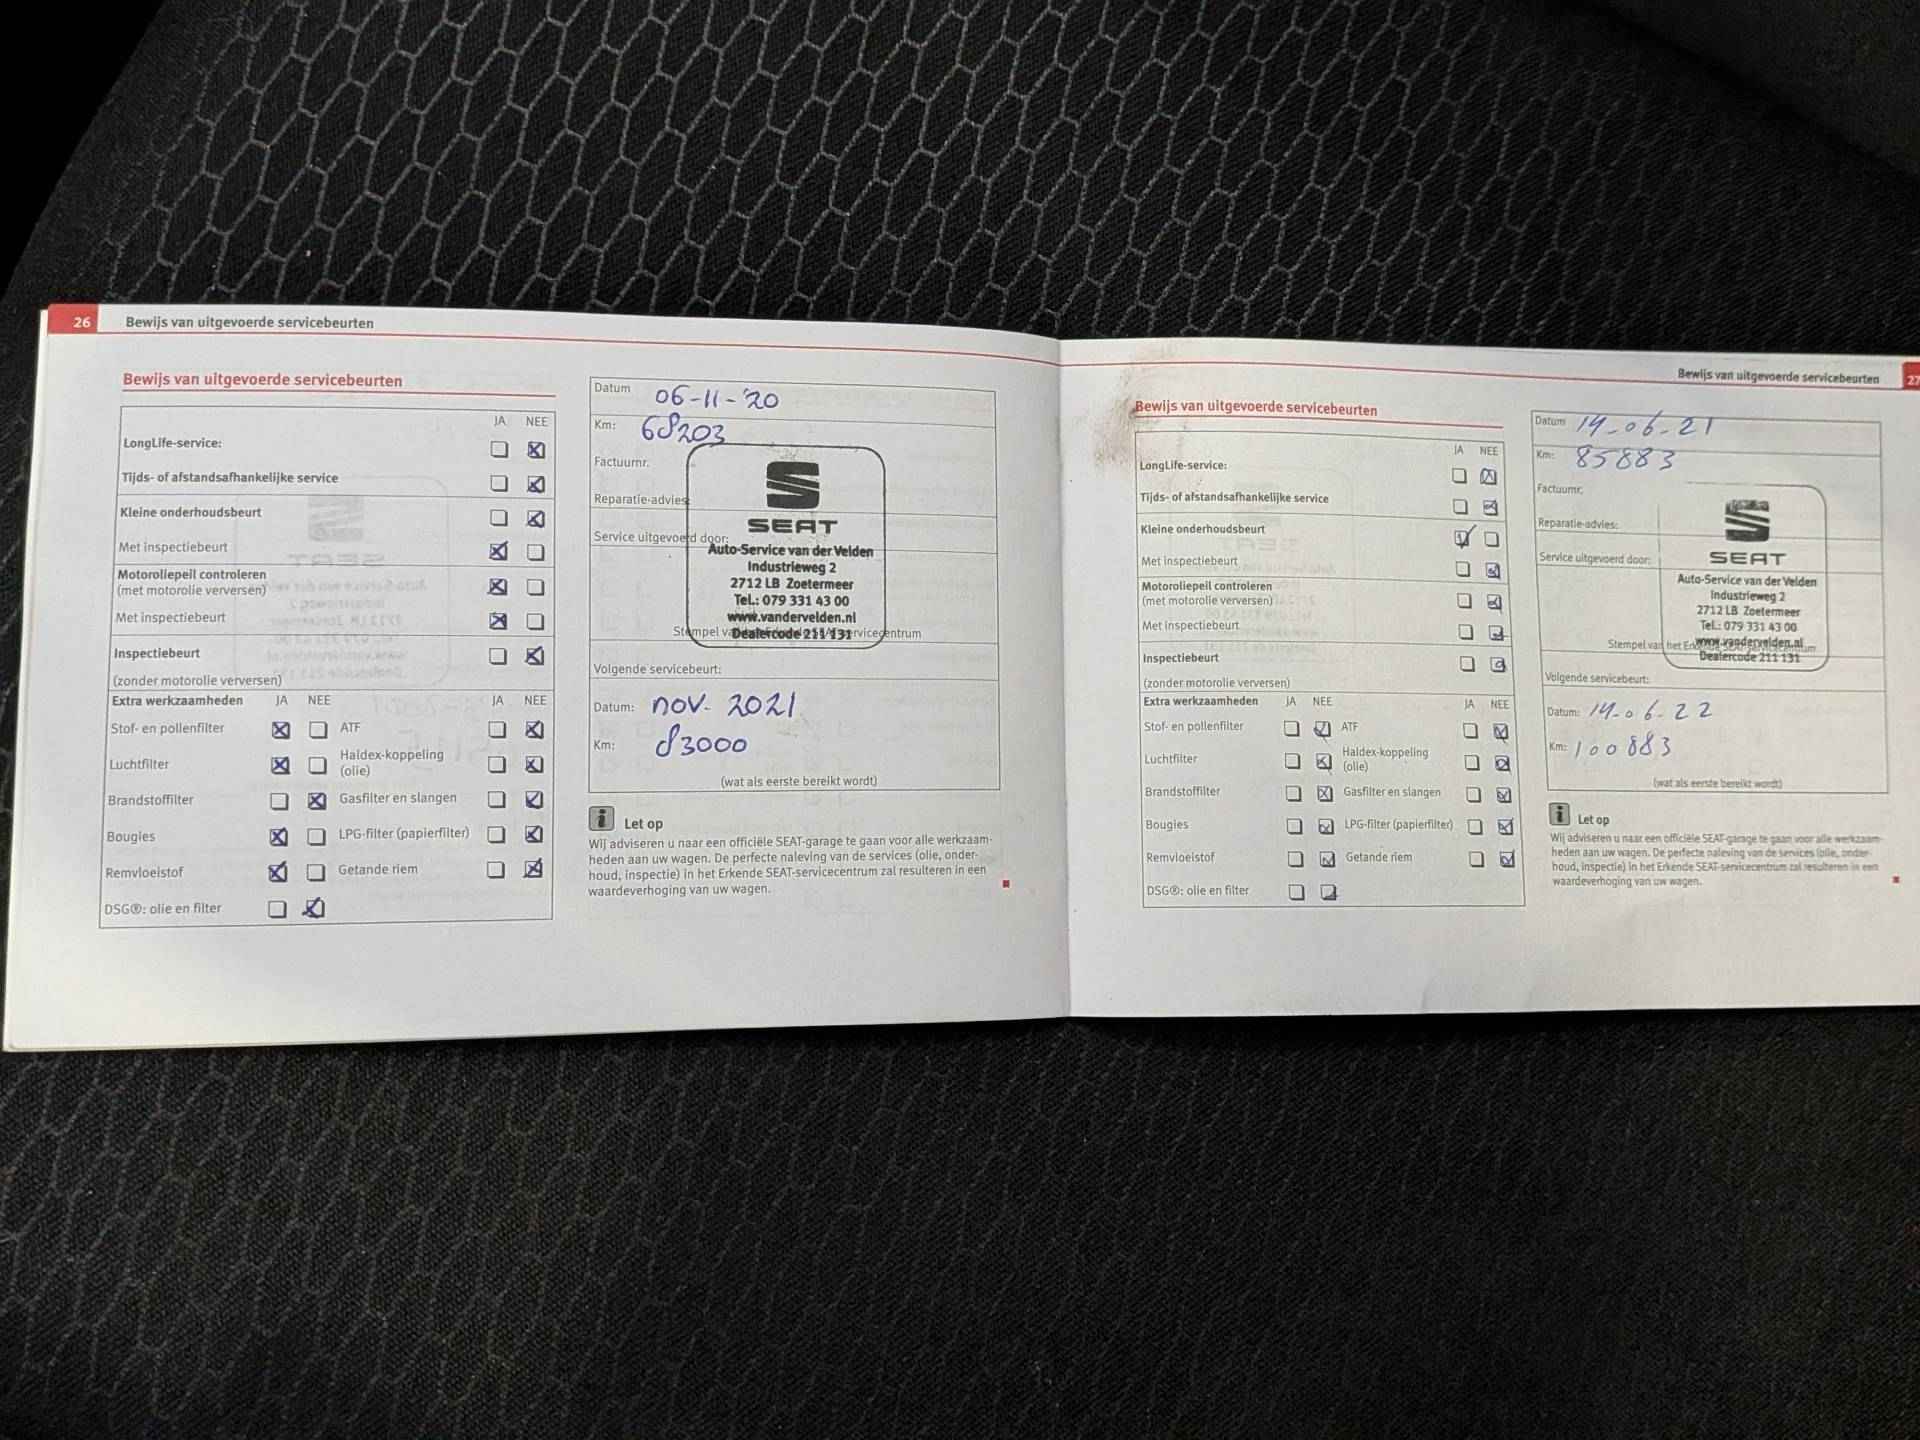 26 Bewijs van uitgevoerde servicebeurten
Bewijs van uitgevoerde servicebeurten
JA NEE
LongLife-service:
Tijds- of afstandsafhankelijke service
Kleine onderhoudsbeurt
Met inspectiebeurt
Motoroliepeil controleren
(met motorolie verversen)
Met inspectiebeurt
Inspectiebeurt
(zonder motorolie verversen)
Extra werkzaamheden JA NEE JA NEE
Stof- en pollenfilter ATF
Luchtfilter Haldex-koppeling
(olie)
Brandstoffilter Gasfilter en slangen
Bougies LPG-filter (papierfilter)
Remvloeistof Getande riem
DSG®: olie en filter
Datum 06-11-'20
Km: 68203
Factuurnr.
Reparatie-advies
Service uitgevoerd door:
SEAT
Auto-Service van der Velden
Industrieweg 2
2712 LB Zoetermeer
Tel.: 079 331 43 00
www.vandervelden.nl
Dealercode 211 131
Stempel servicecentrum
Volgende servicebeurt:
Datum: nov- 2021
Km: 83000
(wat als eerste bereikt wordt)
i Let op
Wij adviseren u naar een officiële SEAT-garage te gaan voor alle werkzaam-
heden aan uw wagen. De perfecte naleving van de services (olie, onder-
houd, inspectie) in het Erkende SEAT-servicecentrum zal resulteren in een
waardeverhoging van uw wagen.
Bewijs van uitgevoerde servicebeurten 27
Bewijs van uitgevoerde servicebeurten
JA NEE
LongLife-service:
Tijds- of afstandsafhankelijke service
Kleine onderhoudsbeurt
Met inspectiebeurt
Motoroliepeil controleren
(met motorolie verversen)
Met inspectiebeurt
Inspectiebeurt
(zonder motorolie verversen)
Extra werkzaamheden JA NEE JA NEE
Stof- en pollenfilter ATF
Luchtfilter Haldex-koppeling
(olie)
Brandstoffilter Gasfilter en slangen
Bougies LPG-filter (papierfilter)
Remvloeistof Getande riem
DSG®: olie en filter
Datum 14-06-21
Km: 85883
Factuurnr.
Reparatie-advies:
Service uitgevoerd door:
SEAT
Auto-Service van der Velden
Industrieweg 2
2712 LB Zoetermeer
Tel.: 079 331 43 00
www.vandervelden.nl
Stempel van het Erkende SEAT-servicecentrum
Dealercode 211 131
Volgende servicebeurt:
Datum: 14-06-22
Km: 100883
(wat als eerste bereikt wordt)
i Let op
Wij adviseren u naar een officiële SEAT-garage te gaan voor alle werkzaam-
heden aan uw wagen. De perfecte naleving van de services (olie, onder-
houd, inspectie) in het Erkende SEAT-servicecentrum zal resulteren in een
waardeverhoging van uw wagen.